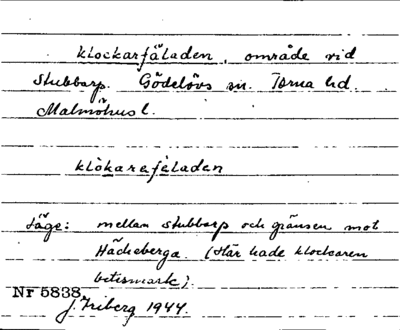 klockarfäladen, område vid
Stubbarp. Gödelövs sn. Torna hd.
Malmöhus l.
klòkarefèladen
Läge: mellan Stubbarp och gränsen mot
Häckeberga. (Här hade klockaren
betesmark).
Nr 5838
J. Friberg 1944.